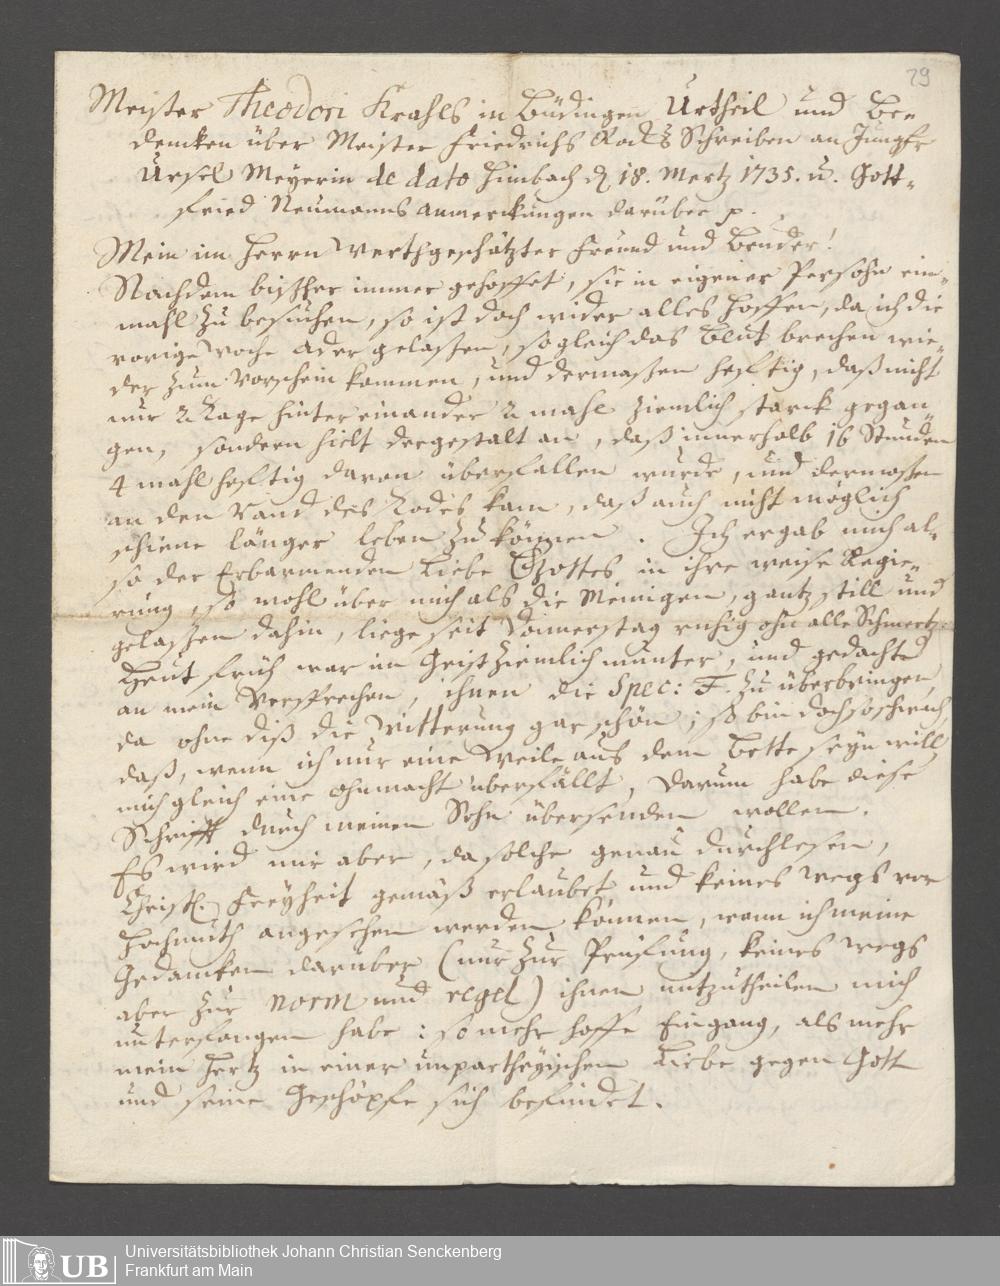 29
Meister Theodori Krahls in Büdingen Urtheil und Be-
dencken über Meister Friedrichs Rocks Schreiben an Jungfr
Ursel Meyerin de dato Himbach d 18. Mertz 1735. u. Gott-
fried Neumanns anmerckungen darüber p.
Mein im Herrn Werthgeschätzter Freund und Bruder!
Nachdem bißher immer gehoffet, sie in eigener Persohn ein-
mahl zu besuchen, so ist doch wider alles hoffen, da ich die
vorige Woche ader gelaßen, so gleich das Blut brechen wie-
der zum Vorschein kommen, und dermaßen hefftig, daß nicht
nur 2 Tage hinter einander 2 mahl ziemlich starck gegan-
gen, sondern hielt dergestalt an, daß innerhalb 16 Stunden
4 mahl hefftig davon überfallen wurde, und dermaßen
an den Rand des Todes kam, daß auch nicht möglich
schiene länger leben zu können. Ich ergab mich al-
so der Erbarmenden Liebe Gottes in ihre weise Regie-
rung, so wohl über mich als die Meinigen, gantz still und
gelaßen dahin, liege seit Donnerstag ruhig ohn alle Schmertz.
Heut früh war im Geist ziemlich munter, und gedachte
an mein Versprechen, ihnen die Spec: F. zu überbringen,
da ohne diß die Witterung gar schön; so bin doch so schwach,
daß, wenn ich nur eine Weile aus dem Bette seyn will,
mich gleich eine ohnmacht überfällt, Darum habe diese
Schrifft durch meinen Sohn übersenden wollen.
Es wird mir aber, da solche genau durchlesen,
Christl. Freyheit gemäß erlaubet und keines wegs vor
Hochmuth angesehen werden können, wann ich meine
Gedancken darüber (nur zur Prüfung, keines wegs
aber zur norm und regel) ihnen mitzutheilen mich
unterfangen habe: so mehr hoffe Eingang, als mehr
mein Hertz in einer unpartheyischen Liebe gegen Gott
und seine Geschöpfe sich befindet.
UB
Universitätsbibliothek Johann Christian Senckenberg
Frankfurt am Main